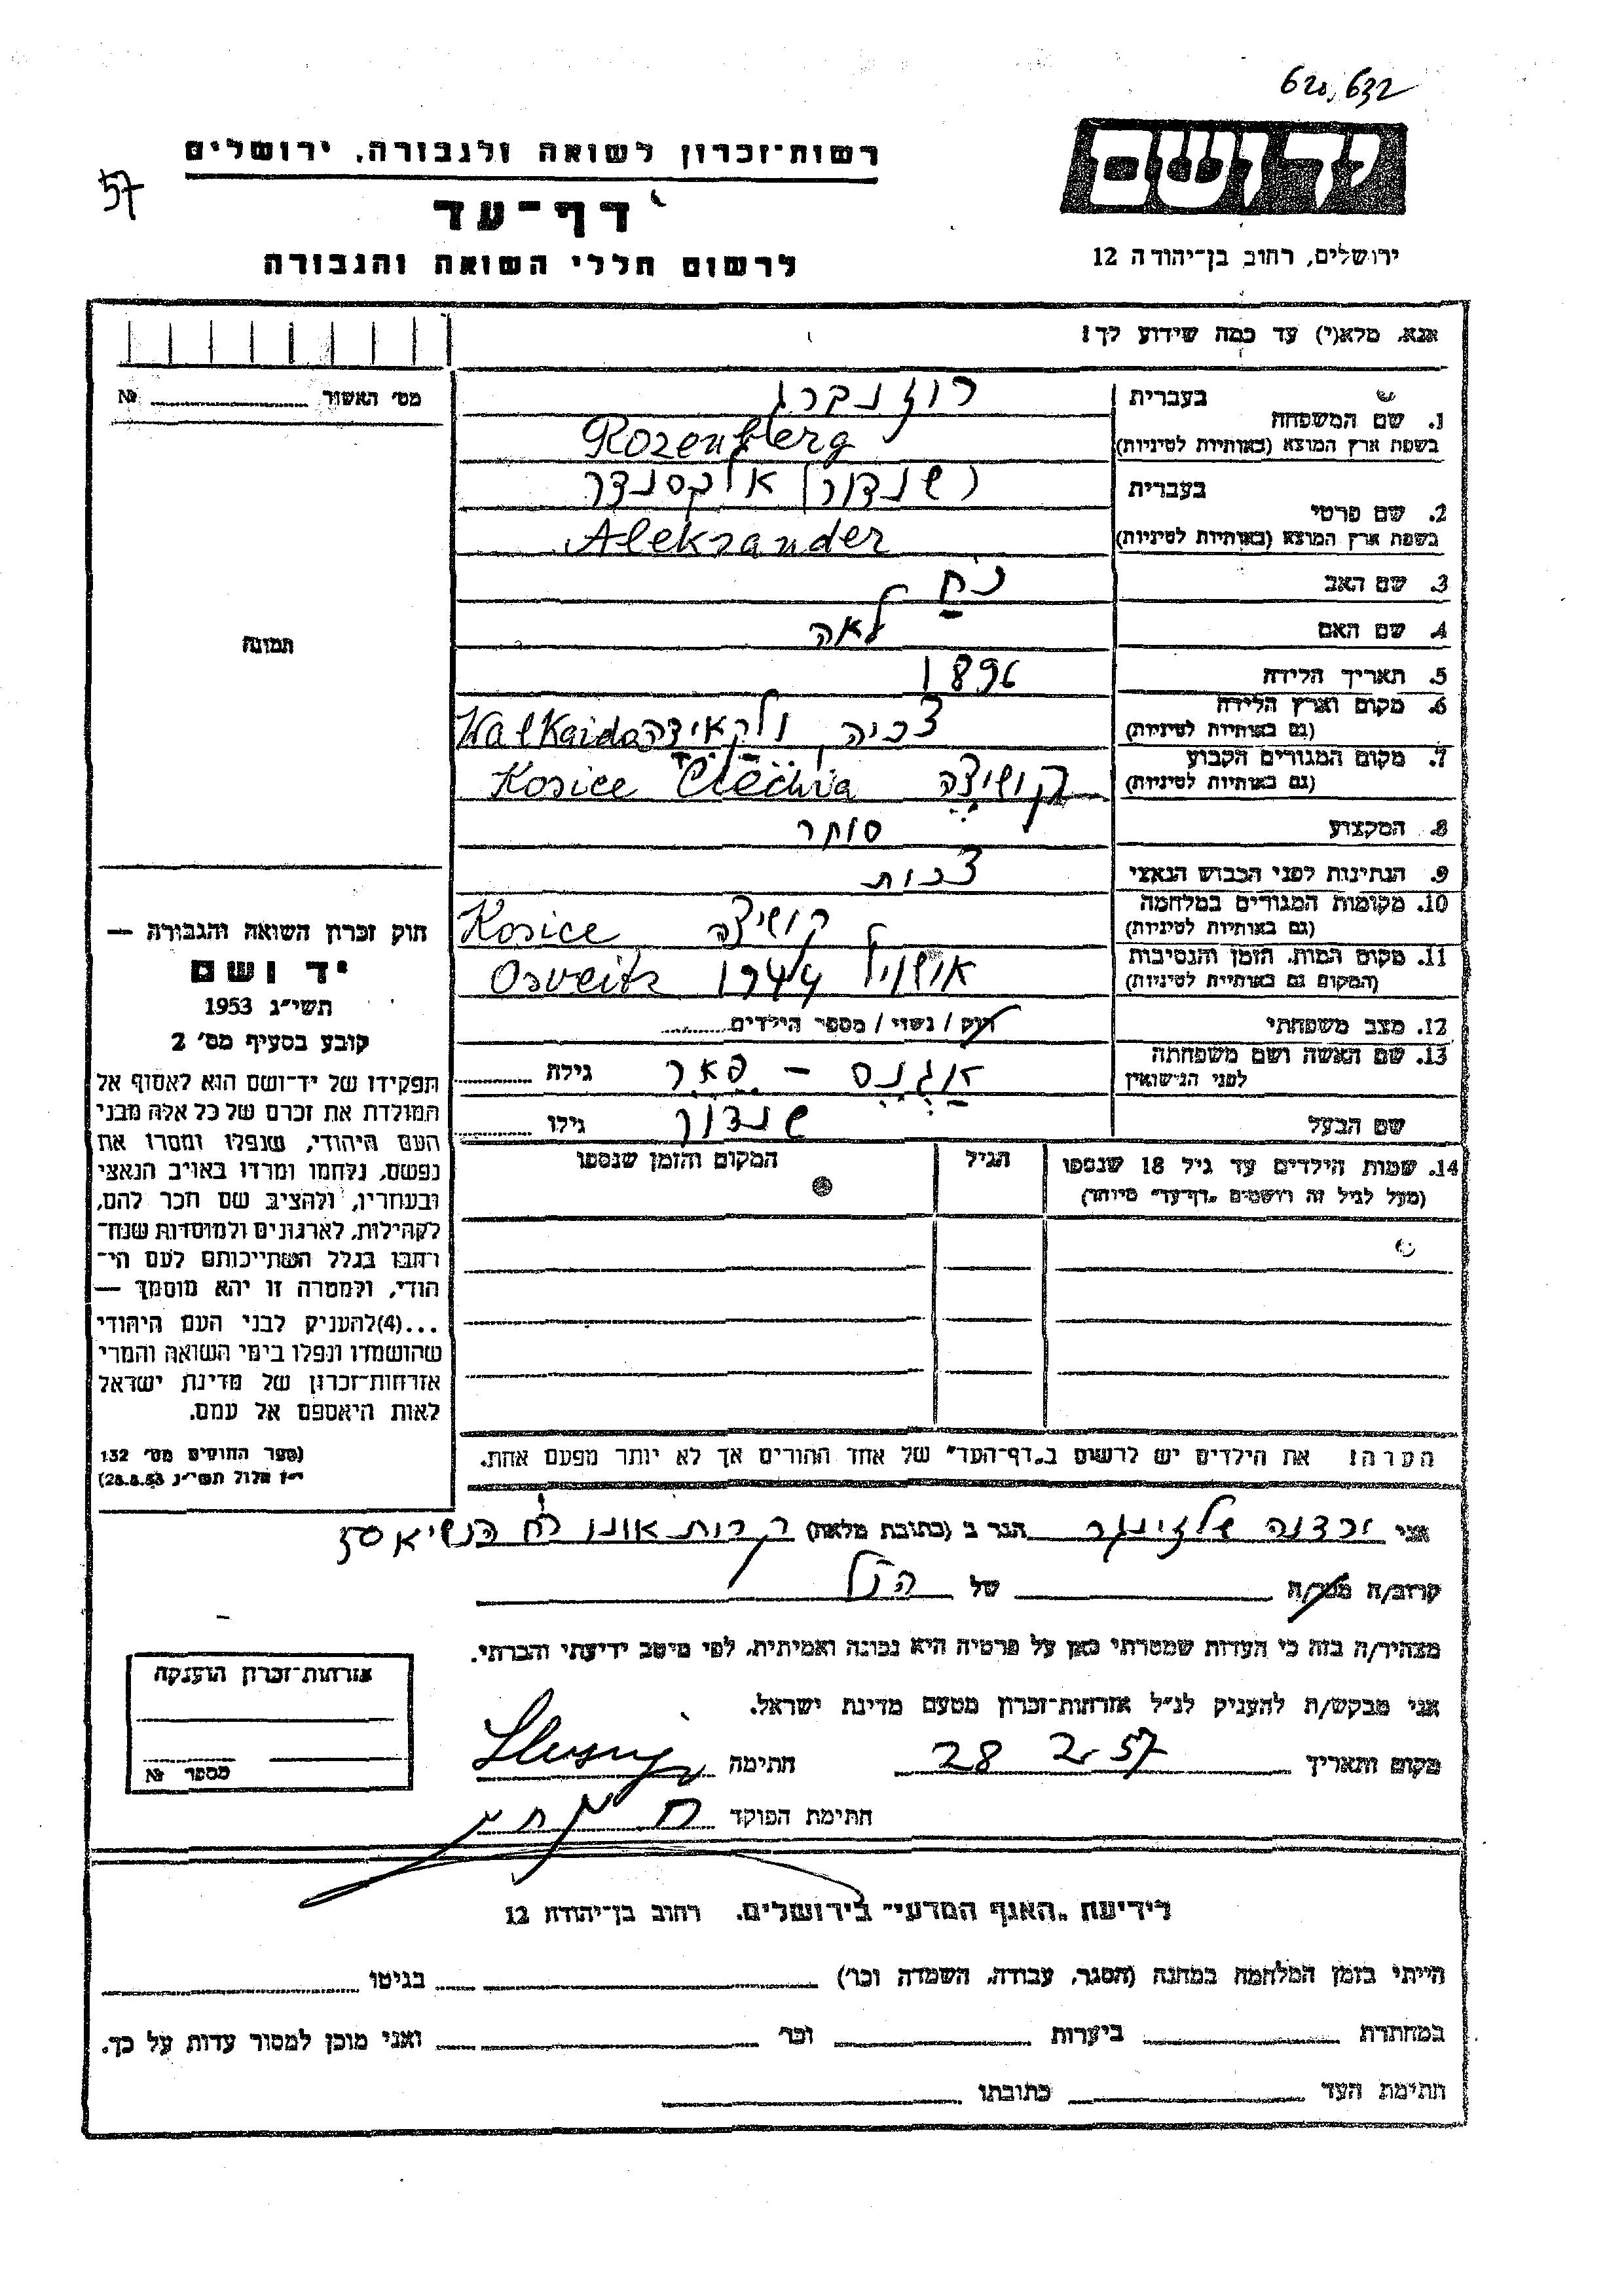 620,632
רשות־זכרון לשואה ולגבורה, ירושלים
57
יד ושם
דף־עד
לרשום חללי השואה והגבורה
ירושלים, רחוב בן־יהודה 12
אנא, מלא(י) עד כמה שידוע לך!
מס׳ האשור № 
1. שם המשפחה
בעברית
רוזנברג
בשפת ארץ המוצא (באותיות לטיניות)
Rozenberg
2. שם פרטי
בעברית
(שנדור) אלכסנדר
בשפת ארץ המוצא (באותיות לטיניות)
Aleksander
3. שם האב
נח
4. שם האם
לאה
תמונה
5. תאריך הלידה
1896
6. מקום וארץ הלידה
(גם באותיות לטיניות)
צ׳כיה, ולקאידה Walkaida
7. מקום המגורים הקבוע
(גם באותיות לטיניות)
קושיצה Kosice Clechia
8. המקצוע
סוחר
9. הנתינות לפני הכבוש הנאצי
צ׳כית
10. מקומות המגורים במלחמה
(גם באותיות לטיניות)
קושיצה Kosice
11. מקום המות, הזמן והנסיבות
(המקום גם באותיות לטיניות)
1944 Osveitz
12. מצב משפחתי
רוק / נשוי / מספר הילדים
13. שם האשה ושם משפחתה
לפני הנישואין
אגנס – פאר
גילה
שם הבעל
שנדור
גילו
14. שמות הילדים עד גיל 18 שנספו
(מעל לגיל זה רושמים „דף־עד” מיוחד)
הגיל
המקום והזמן שנספו
חוק זכרון השואה והגבורה —
יד ושם
תשי״ג 1953
קובע בסעיף מס׳ 2
תפקידו של יד־ושם הוא לאסוף אל
המולדת את זכרם של כל אלה מבני
העם היהודי, שנפלו ומסרו את
נפשם, נלחמו ומרדו באויב הנאצי
ובעוזריו, ולהציב שם וזכר להם,
לקהילות, לארגונים ולמוסדות שנח־
רבו בגלל השתייכותם לעם הי־
הודי, ולמטרה זו יהא מוסמך —
...(4)להעניק לבני העם היהודי
שהושמדו ונפלו בימי השואה והמרי
אזרחות־זכרון של מדינת ישראל
לאות היאספם אל עמם.
(ספר החוקים מס׳ 132
י״ז אלול תשי״ג 28.8.53)
הערה: את הילדים יש לרשום ב„דף־העד” של אחד ההורים אך לא יותר מפעם אחת.
אני ורדנה שלזינגר הגר ב (כתובת מלאה) קרית אונו רח הנשיא 50
קרוב/ה מכר/ה של הנ״ל
מצהיר/ה בזה כי העדות שמסרתי כאן על פרטיה היא נכונה ואמיתית, לפי מיטב ידיעתי והכרתי.
אני מבקש/ת להעניק לנ״ל אזרחות־זכרון מטעם מדינת ישראל.
מקום ותאריך 28 2 57 חתימה
חתימת הפוקד
אזרחות־זכרון הוענקה
מספר №
לידיעת „האגף המדעי” בירושלים. רחוב בן־יהודה 12
הייתי בזמן המלחמה במחנה (הסגר, עבודה, השמדה וכו׳) בגיטו
במחתרת ביערות וכו׳ ואני מוכן למסור עדות על כך.
חתימת העד כתובתו